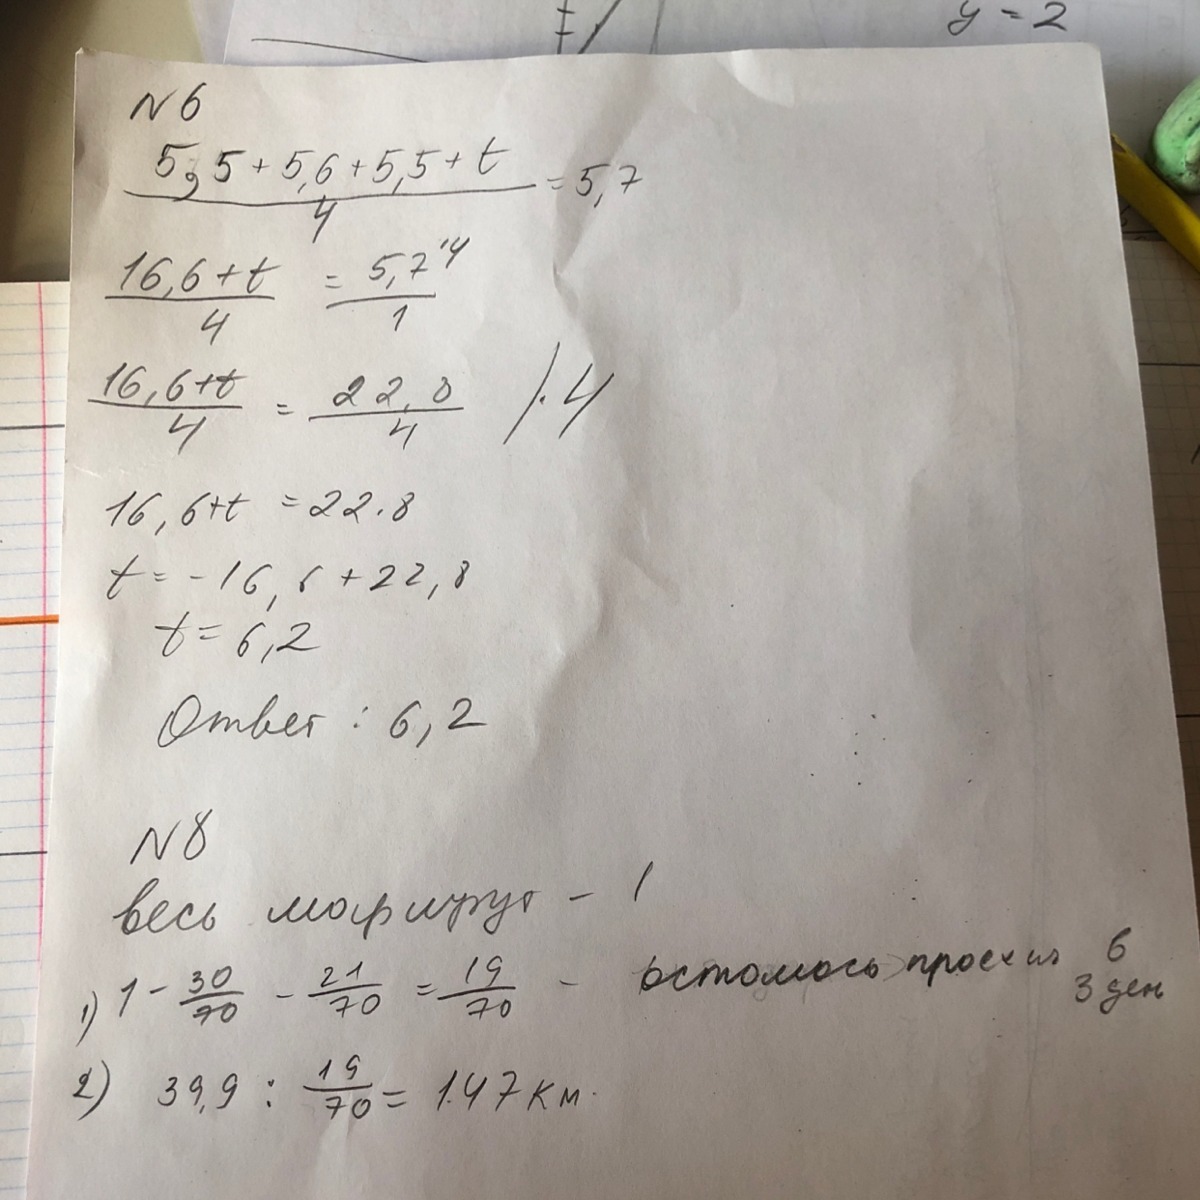 y = 2
N 6
5,5 + 5,6 + 5,5 + t / 4 = 5,7
16,6 + t / 4 = 5,7 ·4 / 1
16,6 + t / 4 = 22,8 / 4 / · 4
16,6 + t = 22.8
t = - 16,6 + 22,8
t = 6,2
Ответ : 6,2
N 8
весь маршрут - 1
1) 1 - 30/70 - 21/70 = 19/70 - осталось проехать в 3 ден
2) 39,9 : 19/70 = 147 км.